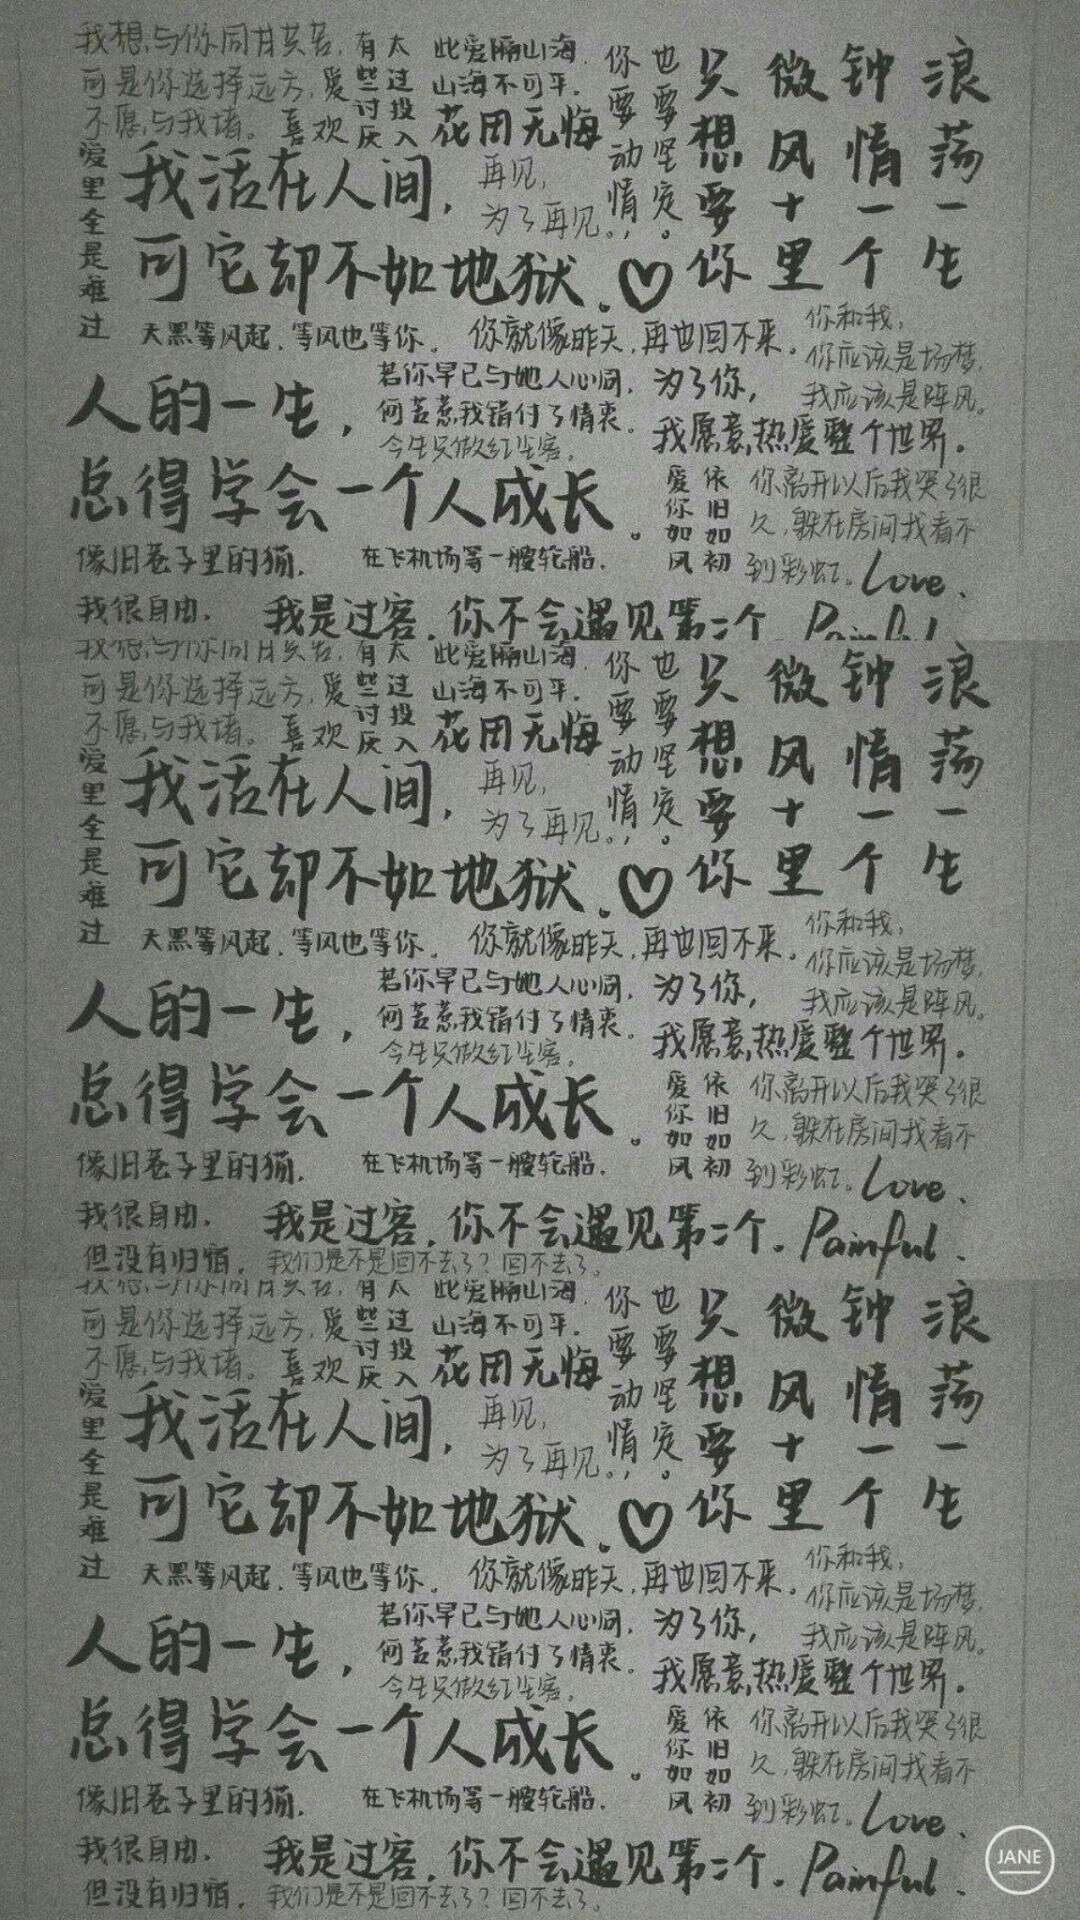 我想与你同甘共苦，
可是你选择远方，爱
不愿与我堵。喜欢
有些讨厌
太过投入
此爱隔山海，
山海不可平。
花田无悔
你要动情，
也要坚定。
只想要你
微风十里
钟情一个
浪荡一生
爱里全是难过
我活在人间，
可它却不如地狱.♡
再见，
为了再见。
天黑等风起，等风也等你。
你就像昨天，再也回不来。
你和我，
你应该是场梦，
我应该是阵风。
人的一生，
总得学会一个人成长。
若你早已与她人心同，
何苦惹我错付了情衷。
今生只做红尘客，
为了你，
我愿意热爱整个世界。
爱你如风
依旧如初
你离开以后我哭了很
久，躲在房间找看不
到彩虹。Love.
像旧巷子里的猫，
在飞机场等一艘轮船.
我很自由，
我是过客，你不会遇见第二个. Painful
有些讨厌
太过投入
此爱隔山海，
山海不可平.
可是你选择远方，爱
不愿与我堵。喜欢
花田无悔
你要动情，
也要坚定。
只想要你
微风十里
钟情一个
浪荡一生
爱里全是难过
我活在人间，
可它却不如地狱.♡
再见，
为了再见。
天黑等风起，等风也等你。
你就像昨天，再也回不来。
你和我，
你应该是场梦，
我应该是阵风。
人的一生，
总得学会一个人成长。
若你早已与她人心同，
何苦惹我错付了情衷。
今生只做红尘客，
为了你，
我愿意热爱整个世界。
爱你如风
依旧如初
你离开以后我哭了很
久，躲在房间找看不
到彩虹。Love.
像旧巷子里的猫，
在飞机场等一艘轮船.
我很自由，
但没有归宿，
我是过客，你不会遇见第二个. Painful.
我们是不是回不去了？回不去了。
有些讨厌
太过投入
此爱隔山海，
山海不可平.
可是你选择远方，爱
不愿与我堵。喜欢
花田无悔
你要动情，
也要坚定。
只想要你
微风十里
钟情一个
浪荡一生
爱里全是难过
我活在人间，
可它却不如地狱.♡
再见，
为了再见。
天黑等风起，等风也等你。
你就像昨天，再也回不来。
你和我，
你应该是场梦，
我应该是阵风。
人的一生，
总得学会一个人成长。
若你早已与她人心同，
何苦惹我错付了情衷。
今生只做红尘客，
为了你，
我愿意热爱整个世界。
爱你如风
依旧如初
你离开以后我哭了很
久，躲在房间找看不
到彩虹。Love.
像旧巷子里的猫，
在飞机场等一艘轮船.
我很自由，
但没有归宿，
我是过客，你不会遇见第二个. Painful.
我们是不是回不去了？回不去了。
JANE